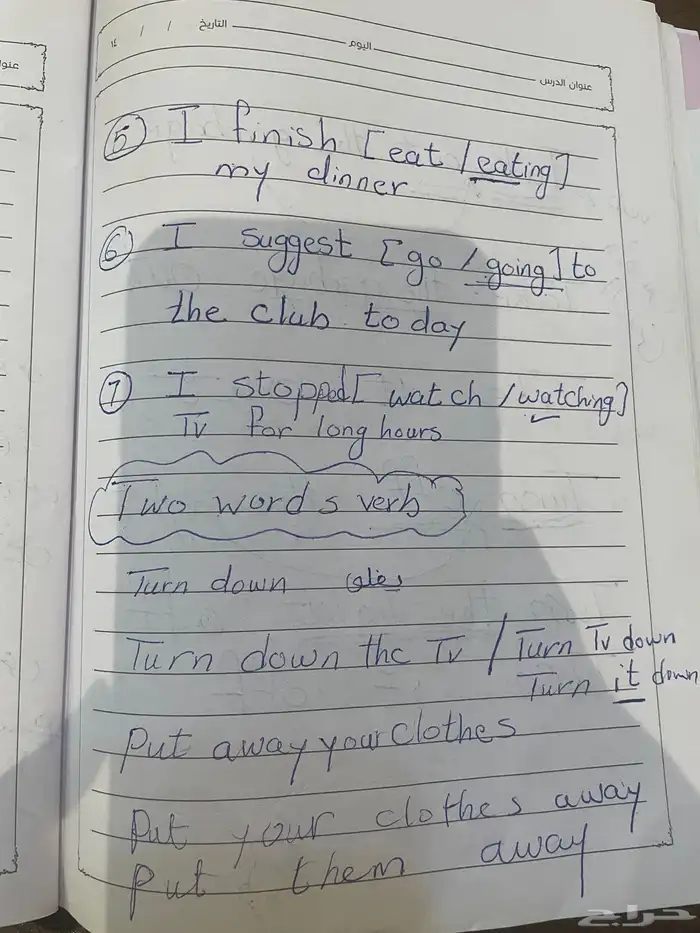 التاريخ / / ١٤
اليوم
عنوان الدرس
⑤ I finish [eat / eating]
my dinner
⑥ I suggest [go / going] to
the club today
⑦ I stopped [watch / watching]
Tv for long hours
Two words verb
Turn down
Turn down the Tv / Turn Tv down
Turn it down
Put away your clothes
Put your clothes away
Put them away
حراج